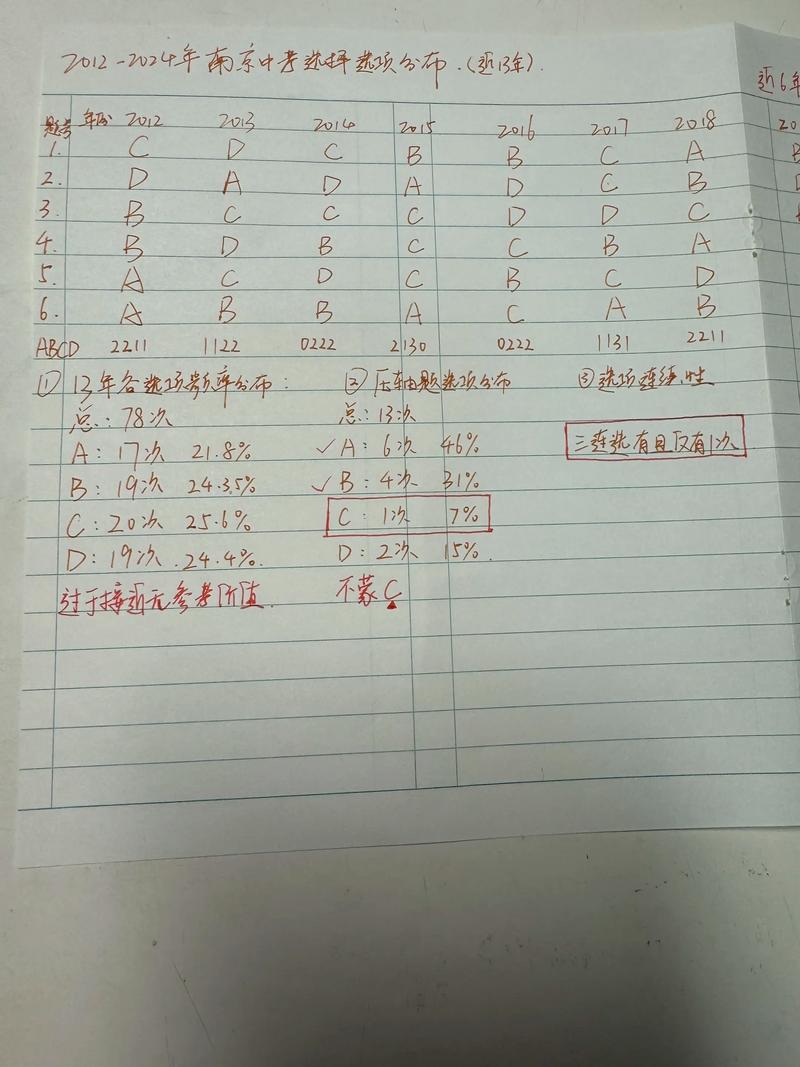 2012-2024年南京中考选择选项分布.(近13年).
近6年
题号 年份 2012 2013 2014 2015 2016 2017 2018 20
1. C D C B B C A B
2. D A D A D C B
3. B C C C D D C
4. B D B C C B A
5. A C D C B C D
6. A B B A C A B
ABCD 2211 1122 0222 2130 0222 1131 2211
① 13年各选项频率分布: ② 压轴题选项分布 ③ 选项连续性
总: 78次 总: 13次
A: 17次 21.8% ✓ A: 6次 46% 三连选有且仅有1次
B: 19次 24.35% ✓ B: 4次 31%
C: 20次 25.6% C: 1次 7%
D: 19次 24.4% D: 2次 15%.
过于接近无参考价值. 不蒙C